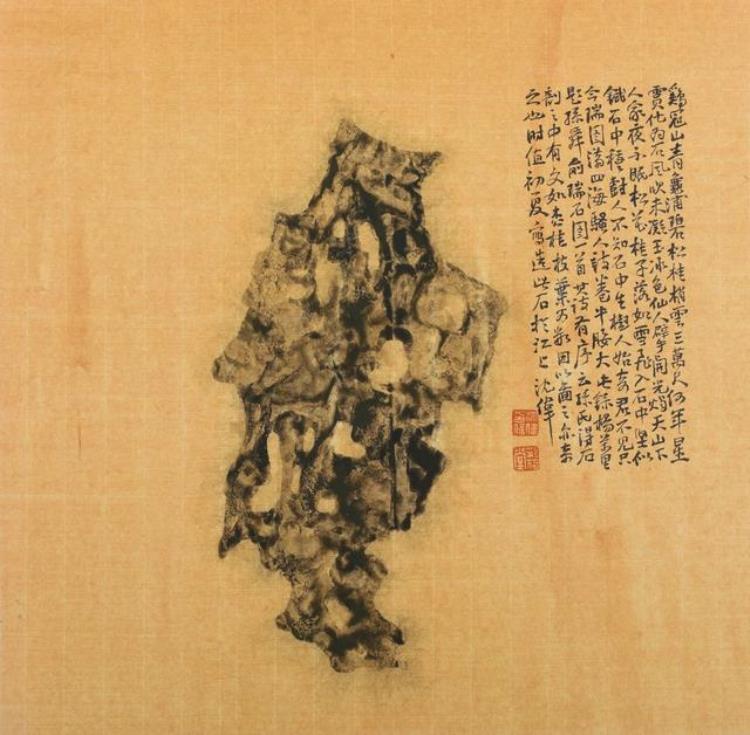 鷄冠山青龜浦碧松桂梢雲三萬尺何年星
賈化为石風吹未凝玉冰色仙人擘開光燭天山下
人家夜不眠松花桂子落如雪飛入石中堅似
鐵石中種樹人不知石中生樹人始奇君不見只
今瑞圖滿四海騷人詩卷牛腰大錄楊萬里
題孫舜俞瑞石圖一首其詩有序云孫氏得石
剖之中有文如枩桂枝葉可數因以圖之亦奇
之也時值初夏寫造此石於江上沈偉